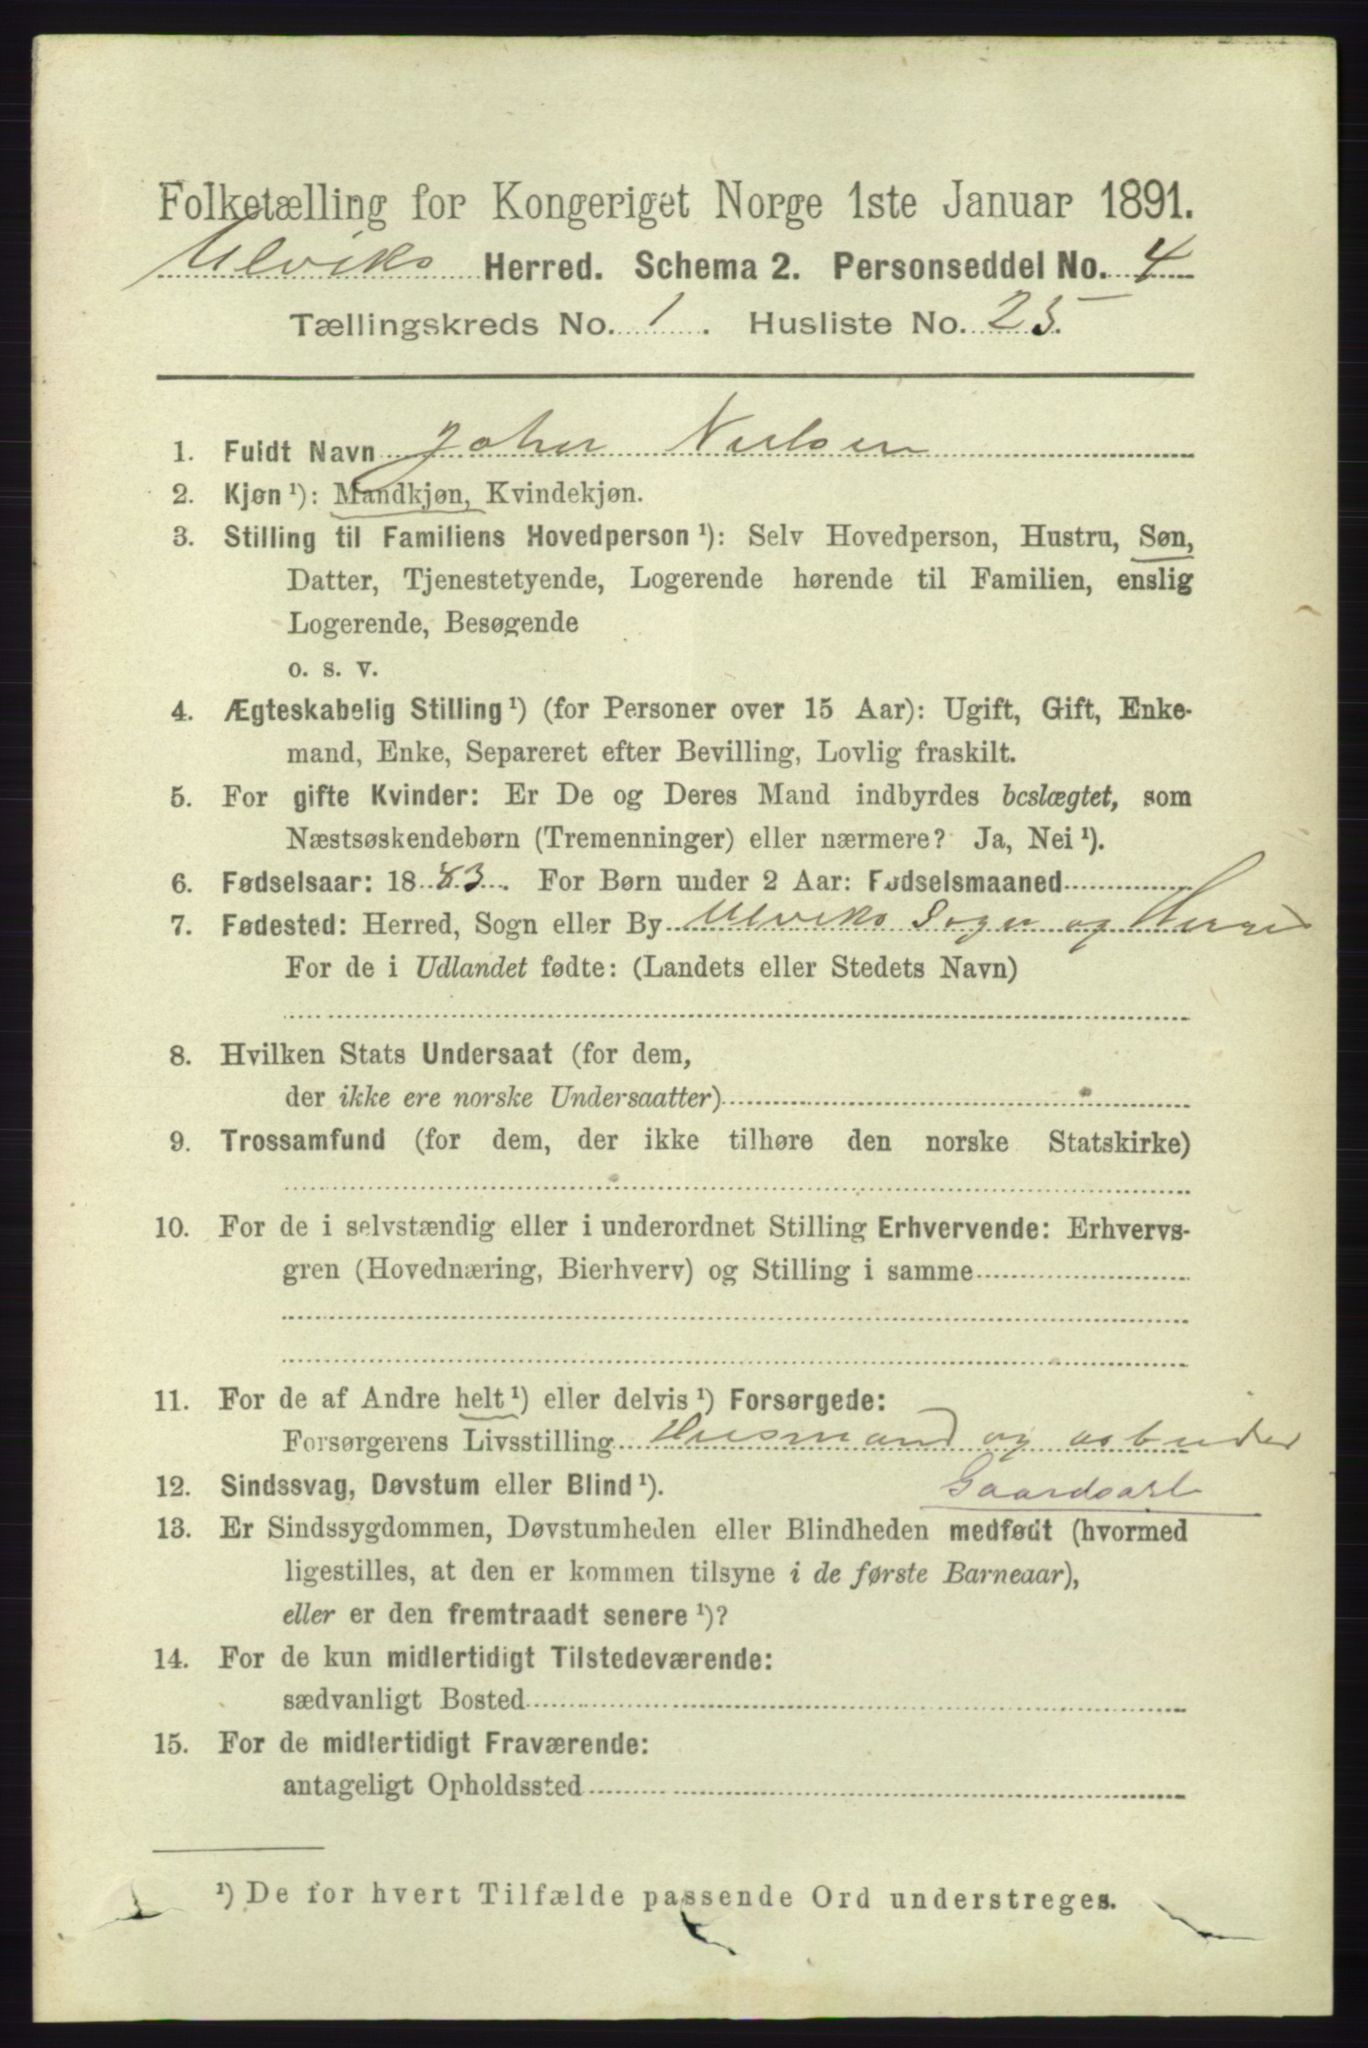 Folketælling for Kongeriget Norge 1ste Januar 1891.
Ulviks Herred. Schema 2. Personseddel No. 4
Tællingskreds No. 1. Husliste No. 25.
1. Fuldt Navn Johan Nielsen
2. Kjøn ¹): Mandkjøn, Kvindekjøn.
3. Stilling til Familiens Hovedperson ¹): Selv Hovedperson, Hustru, Søn,
Datter, Tjenestetyende, Logerende hørende til Familien, enslig
Logerende, Besøgende
o. s. v.
4. Ægteskabelig Stilling ¹) (for Personer over 15 Aar): Ugift, Gift, Enke-
mand, Enke, Separeret efter Bevilling, Lovlig fraskilt.
5. For gifte Kvinder: Er De og Deres Mand indbyrdes beslægtet, som
Næstsøskendebørn (Tremenninger) eller nærmere? Ja, Nei ¹).
6. Fødselsaar: 1883. For Børn under 2 Aar: Fødselsmaaned
7. Fødested: Herred, Sogn eller By Ulviks Sogn og Herred
For de i Udlandet fødte: (Landets eller Stedets Navn)
8. Hvilken Stats Undersaat (for dem,
der ikke ere norske Undersaatter)
9. Trossamfund (for dem, der ikke tilhøre den norske Statskirke)
10. For de i selvstændig eller i underordnet Stilling Erhvervende: Erhvervs-
gren (Hovednæring, Bierhverv) og Stilling i samme
11. For de af Andre helt ¹) eller delvis ¹) Forsørgede:
Forsørgerens Livsstilling Husmand og arbuder
12. Sindssvag, Døvstum eller Blind ¹). Gaardsarb
13. Er Sindssygdommen, Døvstumheden eller Blindheden medfødt (hvormed
ligestilles, at den er kommen tilsyne i de første Barneaar),
eller er den fremtraadt senere ¹)?
14. For de kun midlertidigt Tilstedeværende:
sædvanligt Bosted
15. For de midlertidigt Fraværende:
antageligt Opholdssted
¹) De for hvert Tilfælde passende Ord understreges.